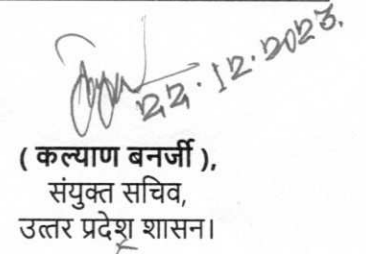 22.12.2023.
( कल्याण बनर्जी ),
संयुक्त सचिव,
उत्तर प्रदेश शासन।